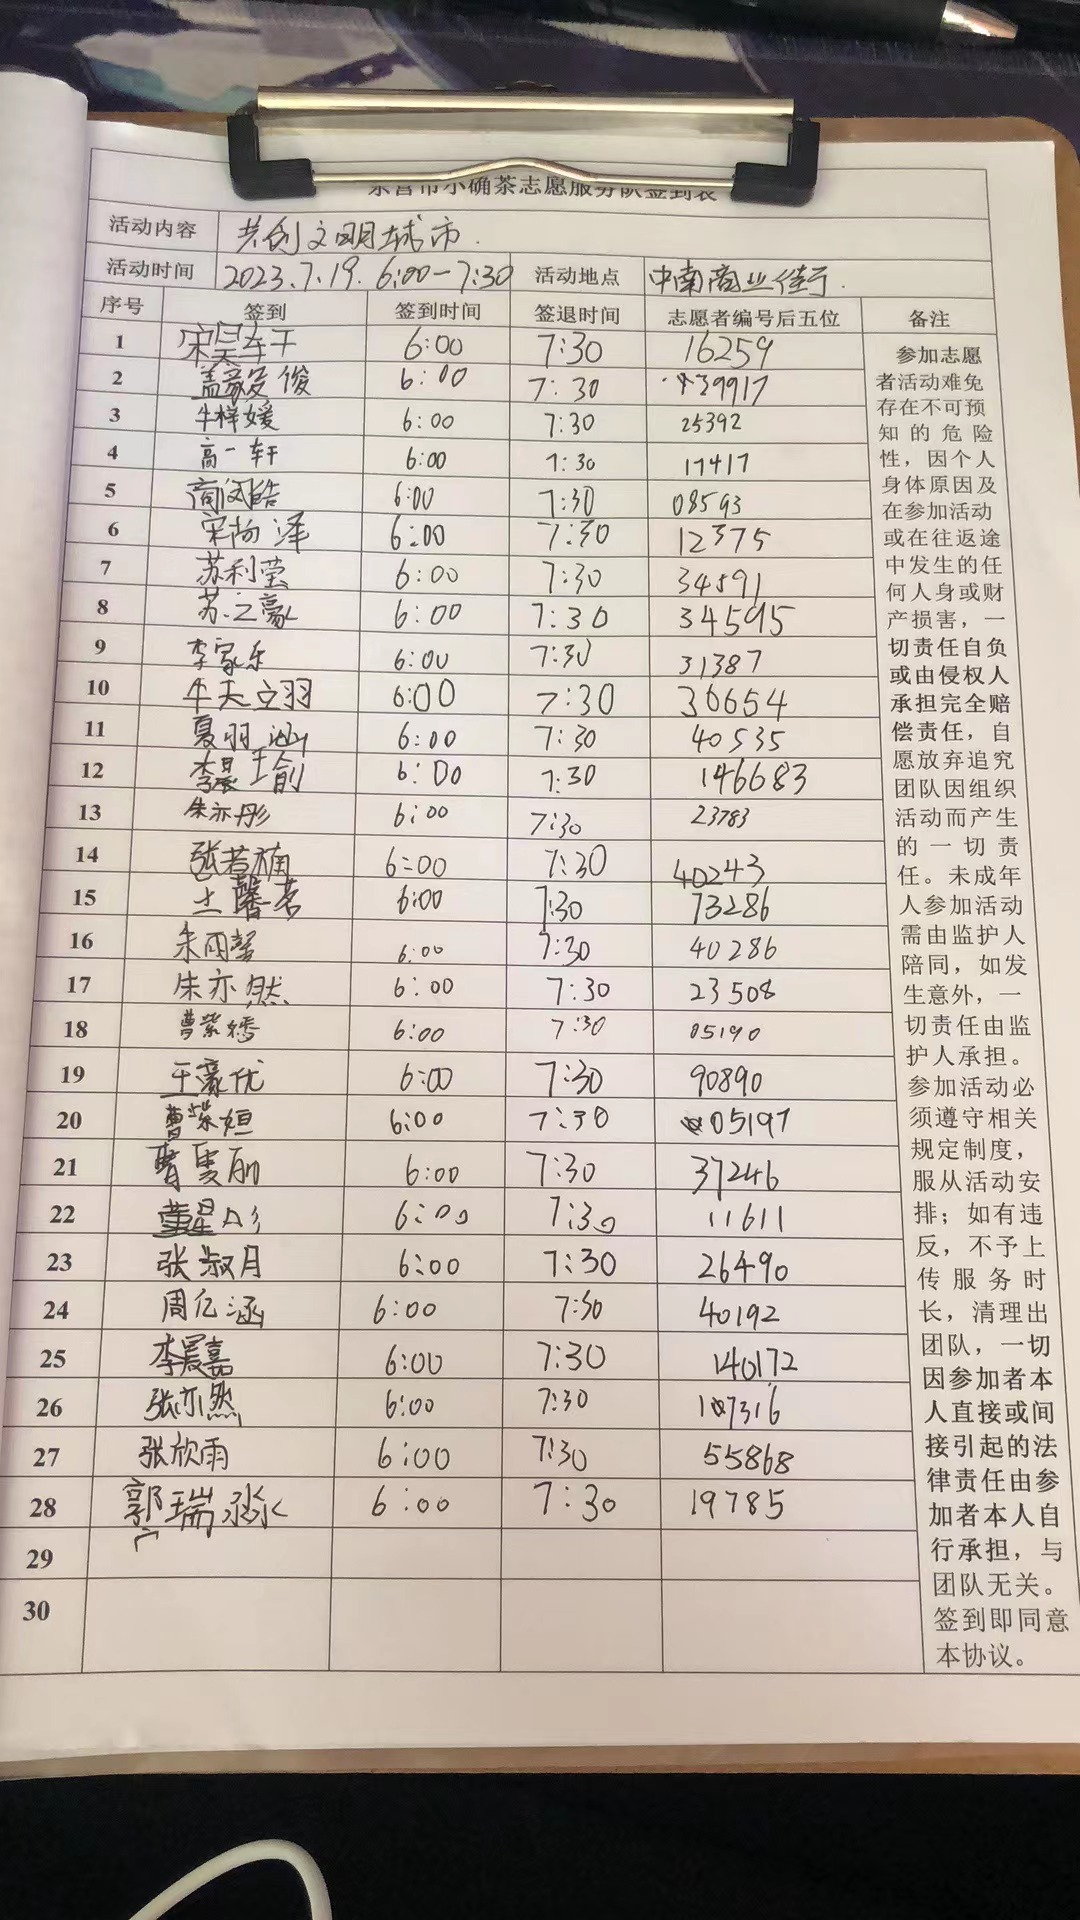 东营市小确茶志愿服务队签到表
活动内容 共创文明城市.
活动时间 2023.7.19. 6:00-7:30 活动地点 中南商业街.
序号 签到 签到时间 签退时间 志愿者编号后五位 备注
1 宋昊轩 6:00 7:30 16259
2 盖豪俊 6:00 7:30 39917
3 牛梓媛 6:00 7:30 25392
4 高一轩 6:00 7:30 17417
5 商闵皓 6:00 7:30 08593
6 宋尚泽 6:00 7:30 12375
7 苏利莹 6:00 7:30 34591
8 苏之豪 6:00 7:30 34595
9 李家乐 6:00 7:30 31387
10 牛天立羽 6:00 7:30 30654
11 夏羽涵 6:00 7:30 40535
12 李晨瑜 6:00 7:30 146683
13 朱亦彤 6:00 7:30 23783
14 张若楠 6:00 7:30 40243
15 王馨茗 6:00 7:30 73286
16 朱雨馨 6:00 7:30 40286
17 朱亦然 6:00 7:30 23508
18 曹紫嫣 6:00 7:30 05190
19 王豪优 6:00 7:30 90890
20 曹紫姮 6:00 7:30 05197
21 6:00 7:30 37246
22 董星彤 6:00 7:30 11611
23 张淑月 6:00 7:30 26490
24 周亿涵 6:00 7:30 40192
25 李晨嘉 6:00 7:30 140172
26 张亦然 6:00 7:30 107316
27 张欣雨 6:00 7:30 55868
28 郭瑞淼 6:00 7:30 19785
29
30
参加志愿
者活动难免
存在不可预
知的危险
性，因个人
身体原因及
在参加活动
或在往返途
中发生的任
何人身或财
产损害，一
切责任自负
或由侵权人
承担完全赔
偿责任，自
愿放弃追究
团队因组织
活动而产生
的一切责
任。未成年
人参加活动
需由监护人
陪同，如发
生意外，一
切责任由监
护人承担。
参加活动必
须遵守相关
规定制度，
服从活动安
排；如有违
反，不予上
传服务时
长，清理出
团队，一切
因参加者本
人直接或间
接引起的法
律责任由参
加者本人自
行承担，与
团队无关。
签到即同意
本协议。